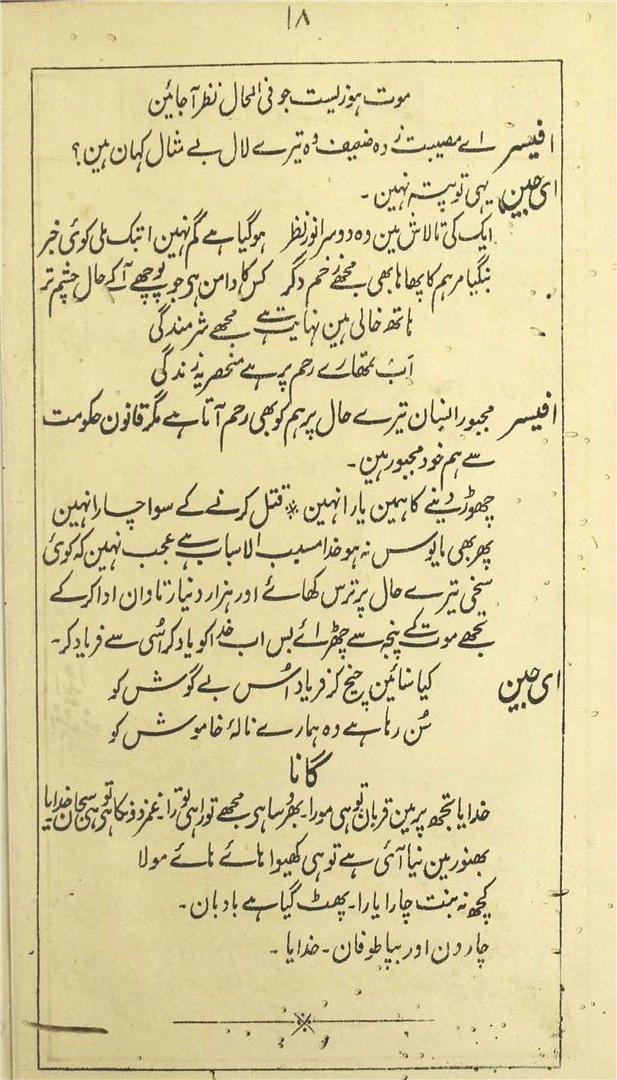 ۱۸
موت ہو زیست جو فی الحال نظر آجائین
افیسر اے مصیبت زدہ ضعیف وہ تیرے لال بے مثال کہان ہین؟
ای جبین یہی تو پتہ نہین ۔
ایک کی تالاش مین دہ دوسرا نور نظر ہوگیا ہے گم نہین ابتک ملی کوئی خبر
بنگیا مرہم کا پھاہا بھی مجھے زخم دگر کس کا دامن ہی جو پوچھے آکے حال چشم تر
ہاتھ خالی ہین نہایت ہے مجھے شرمندگی
اب تمھارے رحم پر ہے منحصر یہ زندگی
افیسر مجبور انسان تیرے حال پر ہم کو بھی رحم آتا ہے مگر قانون حکومت
سے ہم خود مجبور ہین ۔
چھوڑ دینے کا ہمین یارا نہین * قتل کرنے کے سوا چارا نہین
پھر بھی مایوس نہ ہو خدا مسبب الاسباب ہے عجب نہین کہ کوئی
سخی تیرے حال پر ترس کھائے اور ہزار دنیار تاوان ادا کر کے
تجھے موت کے پنجہ سے چھڑائے بس اب خدا کو یاد کر اُسی سے فریاد کر ۔
ای جبین کیا سنائین چیخ کر فریاد اُس بے گوش کو
سُن رہا ہے دہ ہمارے نالۂ خاموش کو
گانا
خدایا تجھ پر مین قربان تو ہی مورا ۔ بھروسا ہی مجھے تورا ہی تورا ۔ غمزدونکا ہی تو ہی سبحان خدایا
بھنور مین نیا آئی ہے تو ہی کھیوا ہائے ہائے مولا
کچھ نہ بنت چارا یارا ۔ پھٹ گیا ہے بادبان ۔
چار دن اور بپا طوفان ۔ خدایا ۔